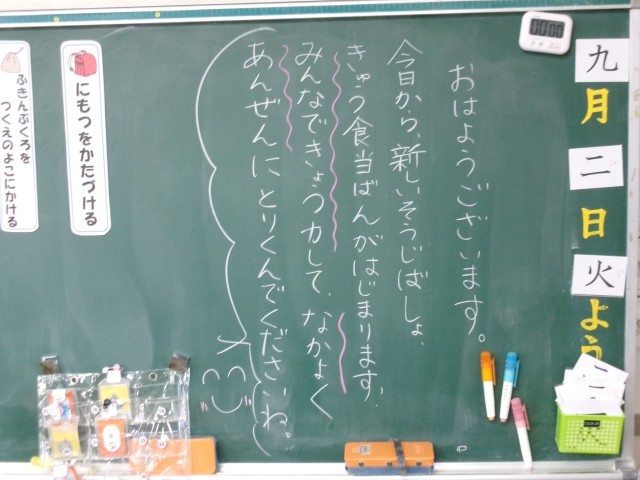 九月二日火よう
おはようございます。
今日から、新しいそうじばしょ、
きゅう食当ばんがはじまります。
みんなできょう力して、なかよく
あんぜんにとりくんでくださいね。
にもつをかたづける
ふきんぶくろを
つくえのよこにかける